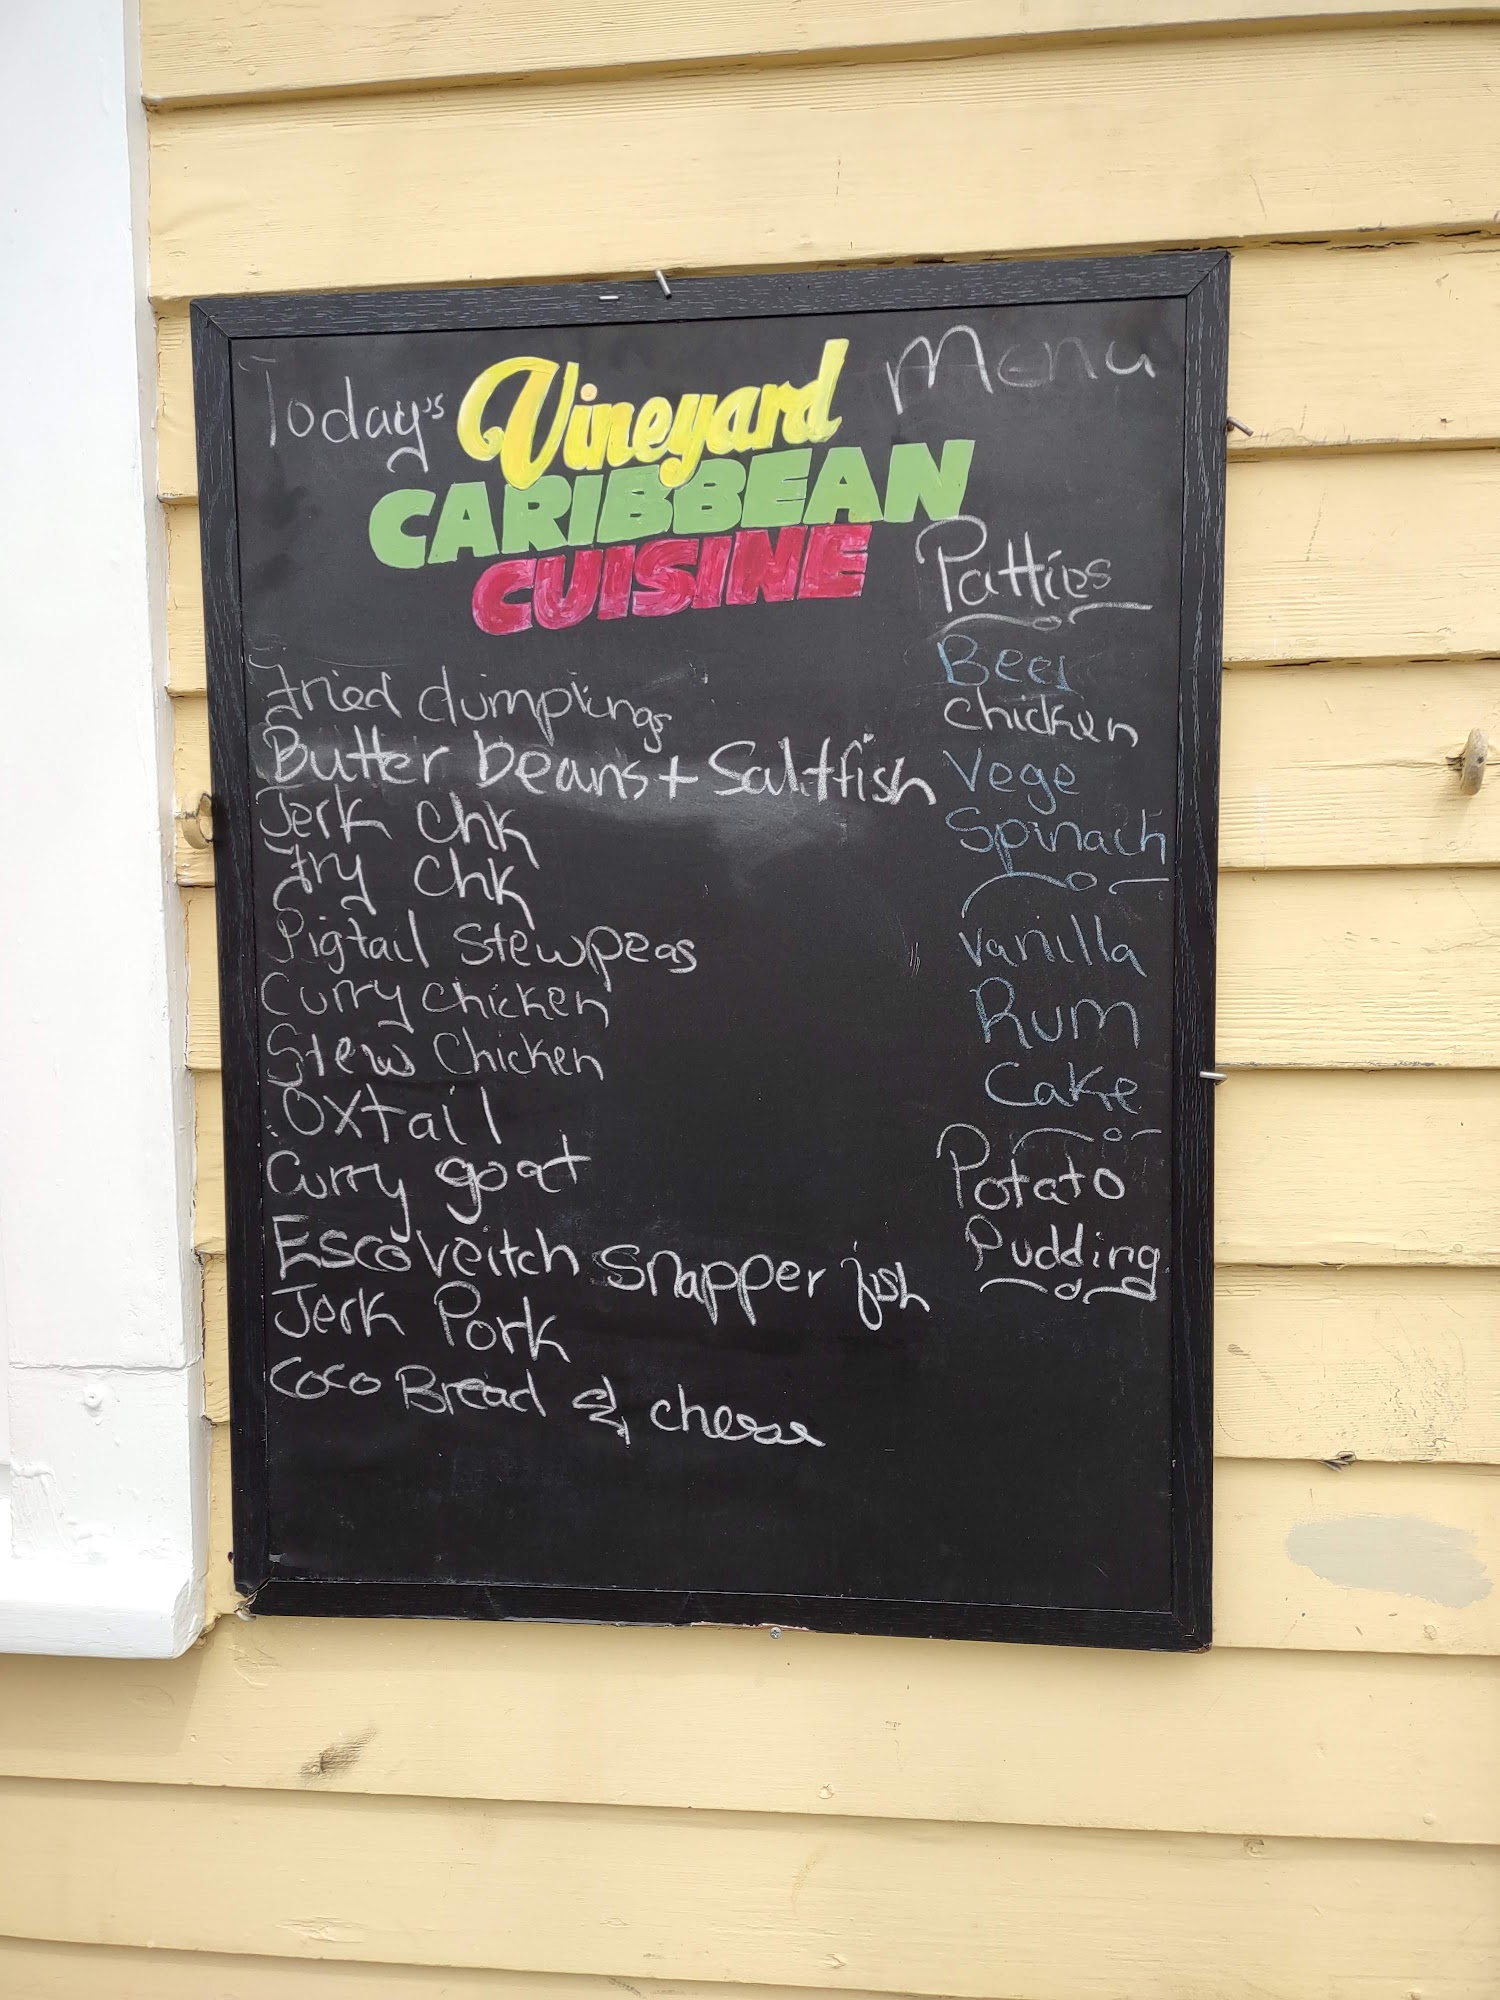 Today's Vineyard Menu
CARIBBEAN
CUISINE
Fried dumplings
Butter beans + Saltfish
Jerk Chk
Fry Chk
Pigtail Stewpeas
Curry chicken
Stew Chicken
Oxtail
Curry goat
Escoveitch Snapper fish
Jerk Pork
Coco Bread & cheese
Patties
Beef
Chicken
Vege
Spinach
Vanilla
Rum
Cake
Potato
Pudding